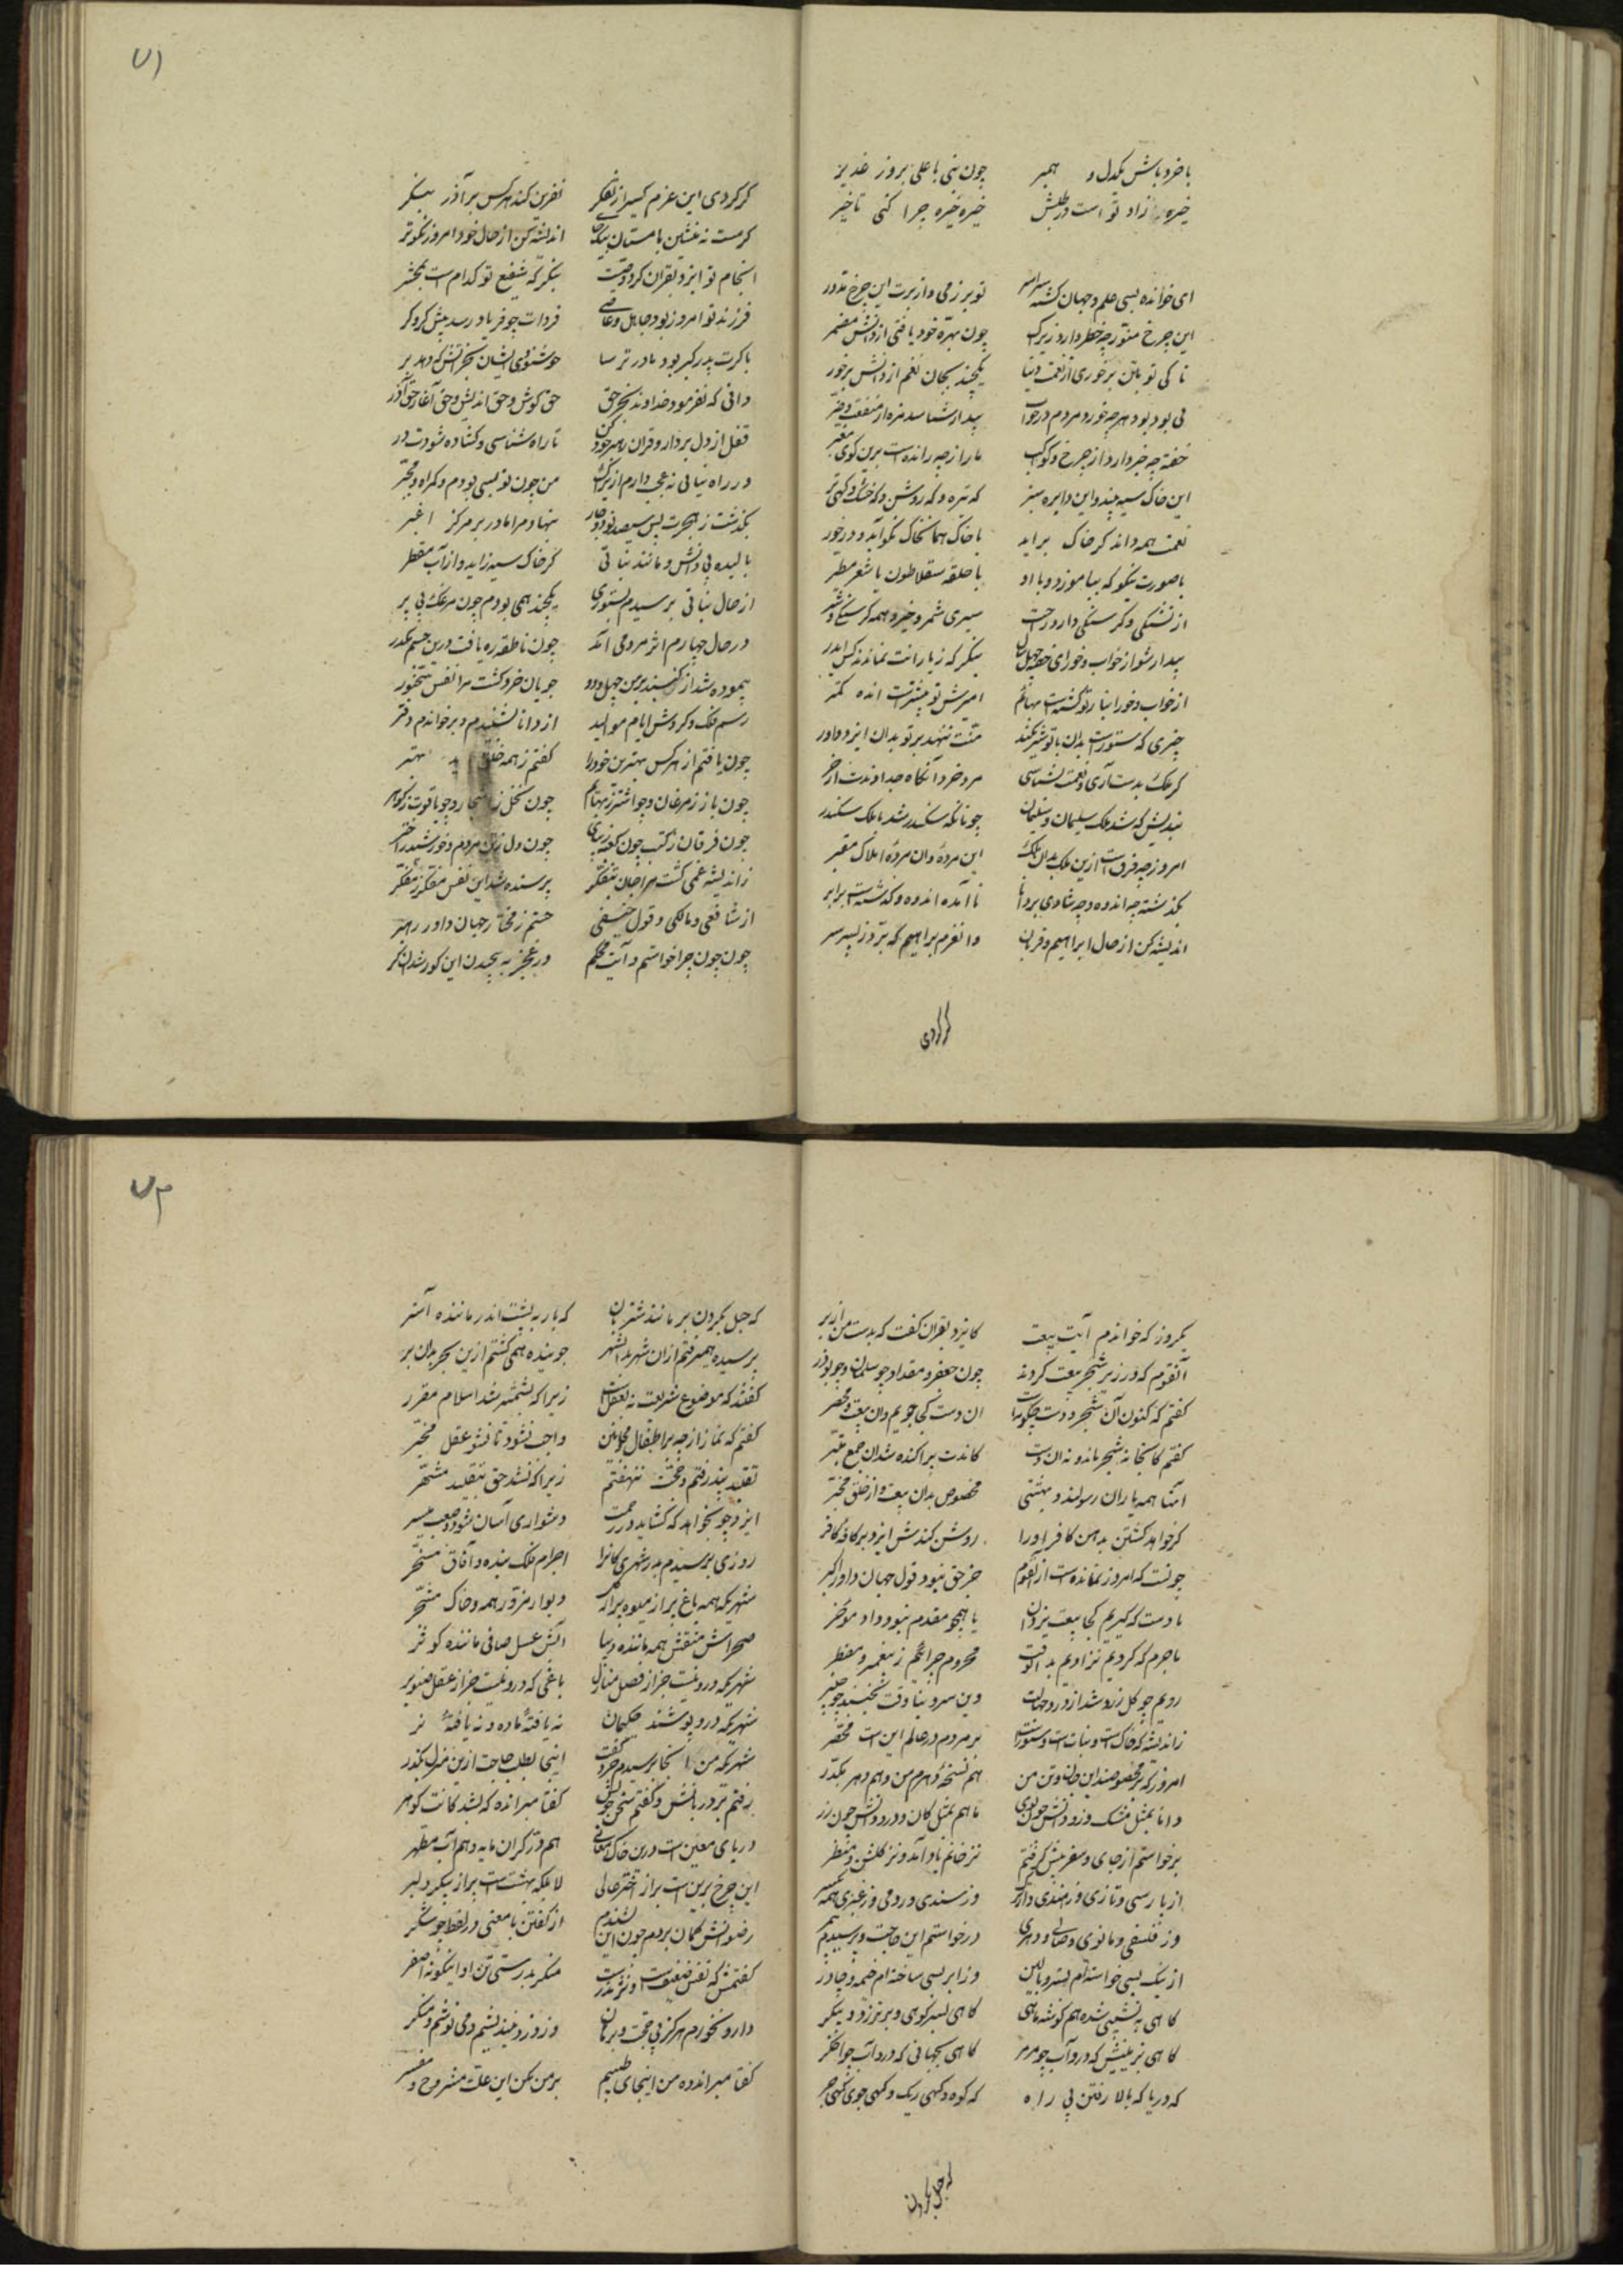 ۷۱
با خرد باش یکدل و همبر چون نبی با علی بروز غدیر
خیره زاد تو است در طلبش خیره خیره چرا کنی تاخیر
ای خوانده بسی علم و جهان گشته سراسر تو بر زمی و از برت این چرخ مدور
این چرخ مدور چه خطر دارد زیرک چون بهره خود یافتی از دانش مضمر
تا کی تو بتن برخوری از نعمت دنیا یکچند بجان نعم از دانش برخور
بی بود بود هر چه خورد مردم در خواب بیدار شناسد مزه از منفعت و ضر
خفته چه خبر دارد از چرخ و کواکب ما را ز چه رانده است برین گوی مغبر
این خاک سیه بیند و این دایره سبز که تیره و که روشن و که خشک و کهی تر
نعمت همه داند کز خاک براید با خاک همان خاک نکو آید و درخور
با صورت نیکو که بیامیزد و با او با حلقه سقلاطون با شعر مطیر
از تشنگی و گرسنگی دارد راحت سیری شمرد خیر و همه گرسنگی شر
بیدار شو از خواب و خور ای خفته چهل سال بنگر که ز یارانت نماندند کس ایدر
از خواب و خور انباز تو گشته است بهائم امیزش تو بیشترست انده کمتر
چیزی که ستورانت بدان با تو شریکند منت ننهد بر تو بدان ایزد داور
گر ملک بدست آری و نعمت بشناسی مرد خرد آنگاه جدا داندت از خر
بندیش که شد ملک سلیمان و سلیمان چونانکه سکندر شد با ملک سکندر
امروز چه فرقست ازین ملک بدان ملک این مرده و ان مرده و املاک مغبر
بگذشته چه اندوه و چه شادی بر دانا نا آمده اندوه و گذشته است برابر
اندیشه کن از حال ابراهیم و قربان وان عزم براهیم که برد ز پسر سر
گر کردی
گر کردی این عزم کسی از تفکر نفرین کندی هر کس بر آذر بتگر
گر مست نه منشین با مستان یکجای اندیشه کن از حال خود امروز نکوتر
انجام تو ایزد بقران کرد وصیت بنگر که شفیع تو کدام است بمحشر
فرزند تو امروز بود جاهل و عاصی فردات چو فریاد رسد پیش گروگر
یا گرت پدر گبر بود مادر ترسا خوشنودی ایشان بجز آتش که دهد بر
دانی که نفرمود خداوند بجز حق حق گوش و حق اندیش و حق آغاز و حق آذر
قفل از دل بردار و قران رهبر خود کن تا راه شناسی و گشاده شودت در
ور راه نیابی نه عجب دارم از یراک من چون تو بسی بودم گمراه و محیر
بگذشت ز هجرت پس سیصد نود و چار بنهاد مرا مادر بر مرکز اغبر
بالیده بی دانش و مانند نباتی کز خاک سیه زاید و از آب مقطر
از حال نباتی برسیدم بستوری یکچند همی بودم چون مرغک بی پر
در حال چهارم اثر مردمی آمد چون ناطقه ره یافت درین جسم مکدر
پیموده شد از گنبد بر من چهل و دو جویان خرد گشت مرا نفس سخنور
رسم فلک و گردش ایام موالید از دانا بشنیدم و برخواندم دفتر
چون یافتم از هر کس بهتر من خود را گفتم ز همه خلق بهتر
چون باز ز مرغان و چو اشتر ز بهائم چون نخل ز اشجار و چو یاقوت ز گوهر
چون فرقان ز کتب چون کعبه ز بناهای چون دل ز تن مردم و خورشید ز اختر
ز اندیشه غمی گشت مرا جان بتفکر پرسنده شد این نفس مفکر ز مفکر
از شافعی و مالکی و قول حنیفی جستم ز مختار جهان داور رهبر
چون چون و چرا خواستم و آیت محکم در عجز به پیچیدند این کور شد ان کر
۷۲
یکروز که خواندم آیت بیعت کایزد بقران گفت که بد دست من از بر
آنقوم که در زیر شجر بیعت کردند چون جعفر و مقداد و چو سلمان و چو بوذر
گفتم که کنون آن شجر و دست چگونه است ان دست کجا جویم و ان بیعت و محضر
گفتم کانجا نه شجر ماند و نه ان دست کاندست پراکنده شد ان جمع مبتر
انها همه یاران رسولند و بهشتی مخصوص بدان بیعت و از خلق مخیر
گر خواهد کشتن بدهن کافر او را روشن کندش ایزد بر کامه کافر
چونست که امروز نمانده است از انقوم جز حق نبود قول جهان داور اکبر
با دست که گیریم کجا بیعت یزدان یا همچو مقدم نبود داد موخر
ما جرم که کردیم نزادیم بد انوقت محروم چرائیم ز پیغمبر و مضطر
رویم چو گل زرد شد از درد جهالت وین سرو بنا وقت بخمید چو چنبر
ز اندیشه که خاک است و نبات است و ستور است بر مردم در عالم این است محقر
امروز که مخصوصند این جان و تن من هم نسخه دهرم من و هم دهر مکدر
دانا بمثل مشک و زو دانش چون بوی یا هم بمثل کان و درو دانش چون زر
برخواستم از جای و سفر پیش گرفتم نز خانم یاد آمد و نز گلشن و منظر
از پارسی و تازی و ز هندی و از ترک وز سندی و رومی و ز عبری همه
وز فلسفی و مانوی و صابی و دهری درخواستم این حاجت و پرسیدم
از سنگ بسی خواسته ام بستر و بالین وز ابر بسی ساخته ام خیمه و چادر
گاهی به نشیبی شده هم گوشه ماهی گاهی بسر کوهی و برتر ز دو پیکر
گاهی بزمینیش که درو آب چو مرمر گاهی بجهانی که درو آب چو اخگر
که دریا که بالا رفتن بی راه که کوه و کهی ریک و کهی جوی و کهی جر
که حبل بگردن
که حبل بگردن بر مانند شتربان که بار بپشت اندر مانند استر
پرسیده همی رفتم از ان شهر بد انشهر جوینده همی گشتم ازین بحر بدان بر
گفتند که موضوع شریعت نه بعقل است زیرا که بشمشیر شد اسلام مقرر
گفتم که نماز از چه بر اطفال و مجانین واجب نشود تا نشود عقل مخیر
تقلید نپذرفتم و حجت ننهفتم زیرا که نشد حق بتقلید مشهر
ایزد چو بخواهد که گشاید در رحمت دشواری آسان شود و صعب میسر
روزی برسیدم بدر شهری کانرا اجرام فلک بنده و آفاق مسخر
شهری که همه باغ پر از میوه پر از گل دیوار مزور همه و خاک مشجر
صحراش منقش همه ماننده دیبا آبش عسل صافی ماننده کوثر
شهری که درو نیست جز از فضل منازل باغی که درو نیست جز از عقل صنوبر
شهری که درو پوشند حکیمان نه یافته ماده و نه یافته نر
شهری که من انجا برسیدم خرد گفت اینجا بطلب حاجت ازین منزل مگذر
رفتم بر دربانش و گفتم سخن خویش گفتا مبر انده که بشد کانت گوهر
دریای معین است درین خاک معانی هم در گران مایه و هم آب مطهر
این چرخ برین است پر از اختر عالی لا بلکه بهشت است پر از پیکر دلبر
رضوانش گمان بردم چون این بشنیدم از گفتن با معنی و ز لفظ چو شکر
گفتمش که نفس ضعیفست و نژندست منگر بدرستی تن او اینگونه اصفر
دارو نخورم هرگز بی حجت و برهان وز درد نیندیشم و می نوشم و منکر
گفتا مبر اندوه من اینجای طبیبم بر من بکن این علت مشروح و مفسر